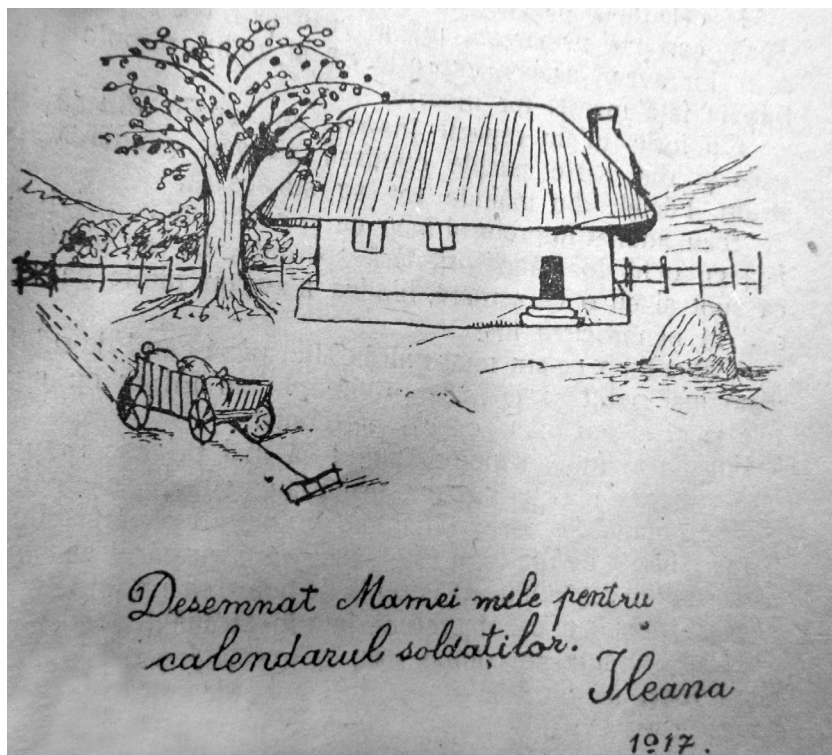 Desemnat Mamei mele pentru
calendarul soldaților.
Ileana
1917.